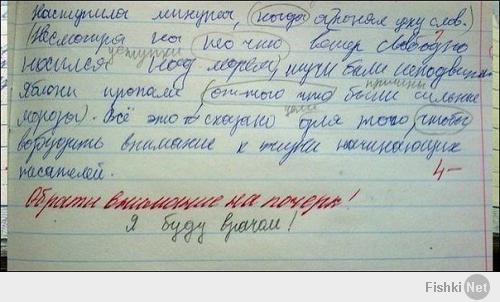 Наступила минута, (когда я понял цену слов.)
Несмотря на то что ветер свободно
уступки
носился над морем, тучи были неподвижн
причины
Яблони пропали (от того что) были сильные
цели
морозы). Всё это сказано для того, (чтобы
возбудить внимание к жизни начинающих
писателей. 4-
Обрати внимание на почерк!
Я буду врачом!
Fishki Net